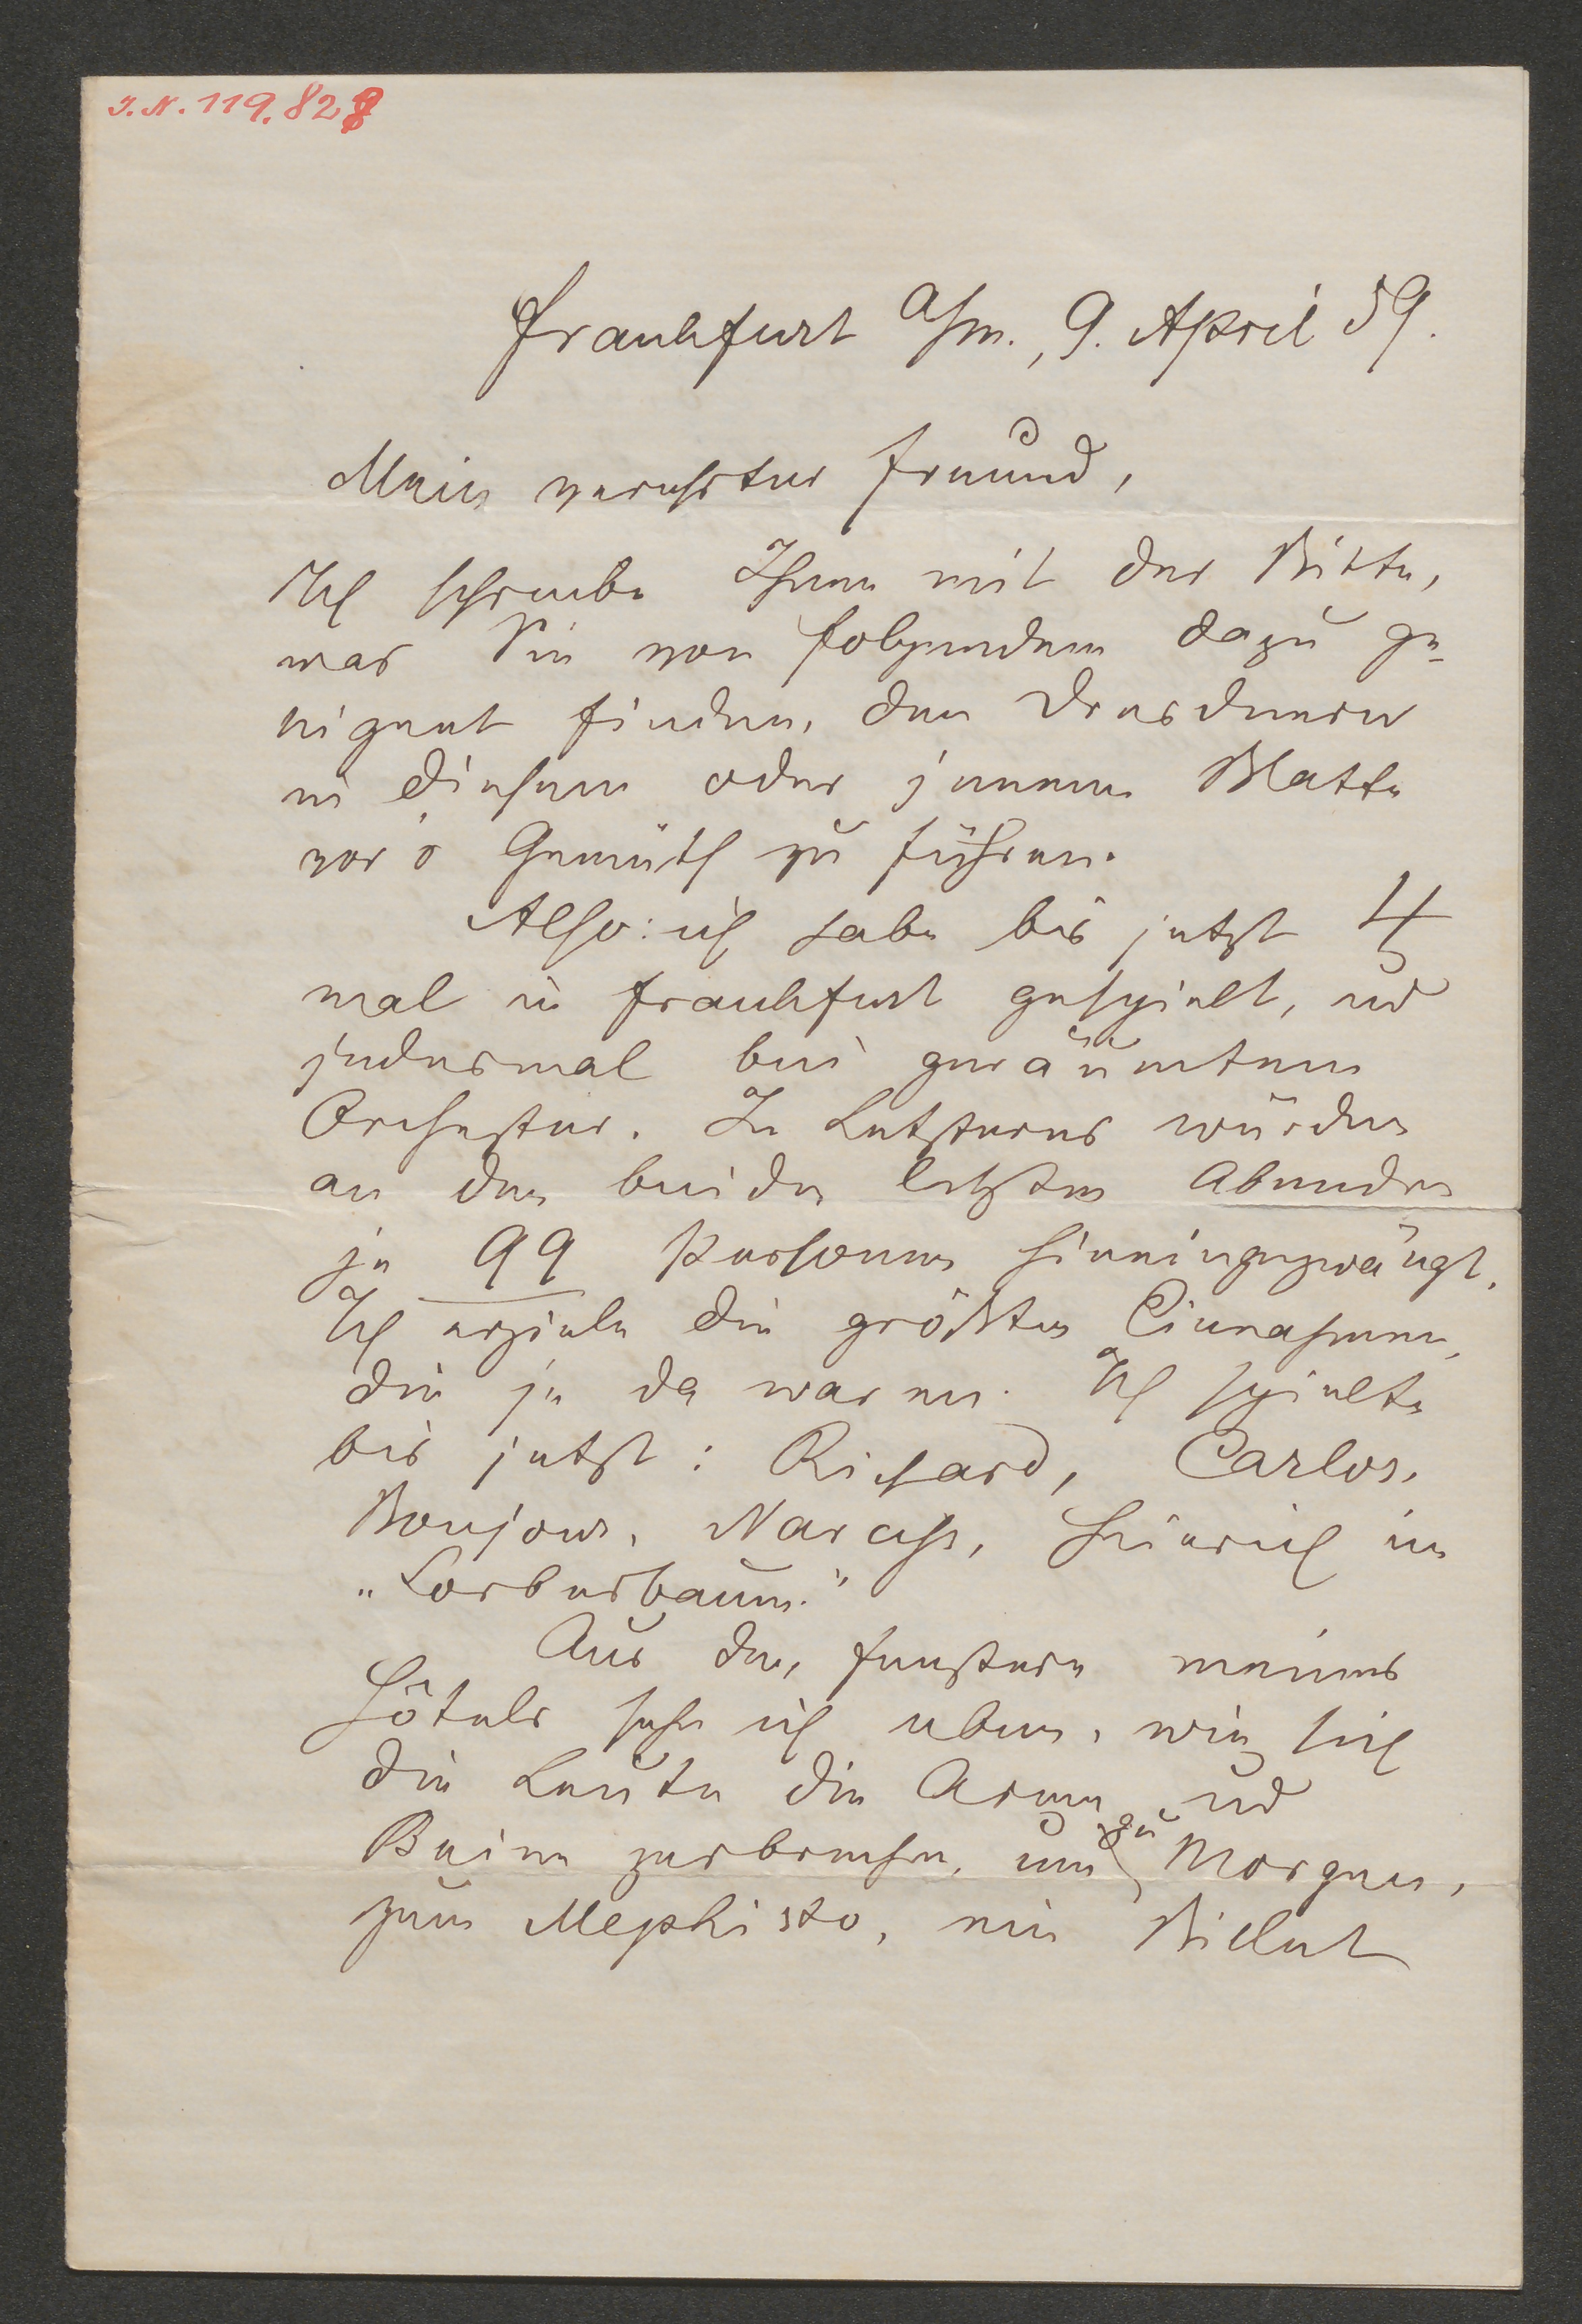 I.N. 119.828
Frankfurt a/m., 9. April 59.
Mein verehrter Freund,
Ich schreibe Ihnen mit der Bitte,
was Sie von folgendem dazu ge-
eignet finden, den Dresdnern
in diesem oder jenem Blatte
vor's Gemüth zu führen.
Also: ich habe bis jetzt 4
mal in Frankfurt gespielt, und
jedesmal bei geräumtem
Orchester. In Letzteres wurden
an den beiden letzten Abenden
je 99 Personen hineingezwängt.
Ich erziele die größten Einnahmen,
die je da waren. Ich spielte
bis jetzt: Richard, Carlos,
Bonjour, Narciß, Heinrich im
„Lorberbaum."
Aus den Fenstern meines
Hôtels sehe ich eben, wie sich
die Leute die Arme und
Beine zerbrechen, um zu Morgen,
zum Mephisto, ein Billet